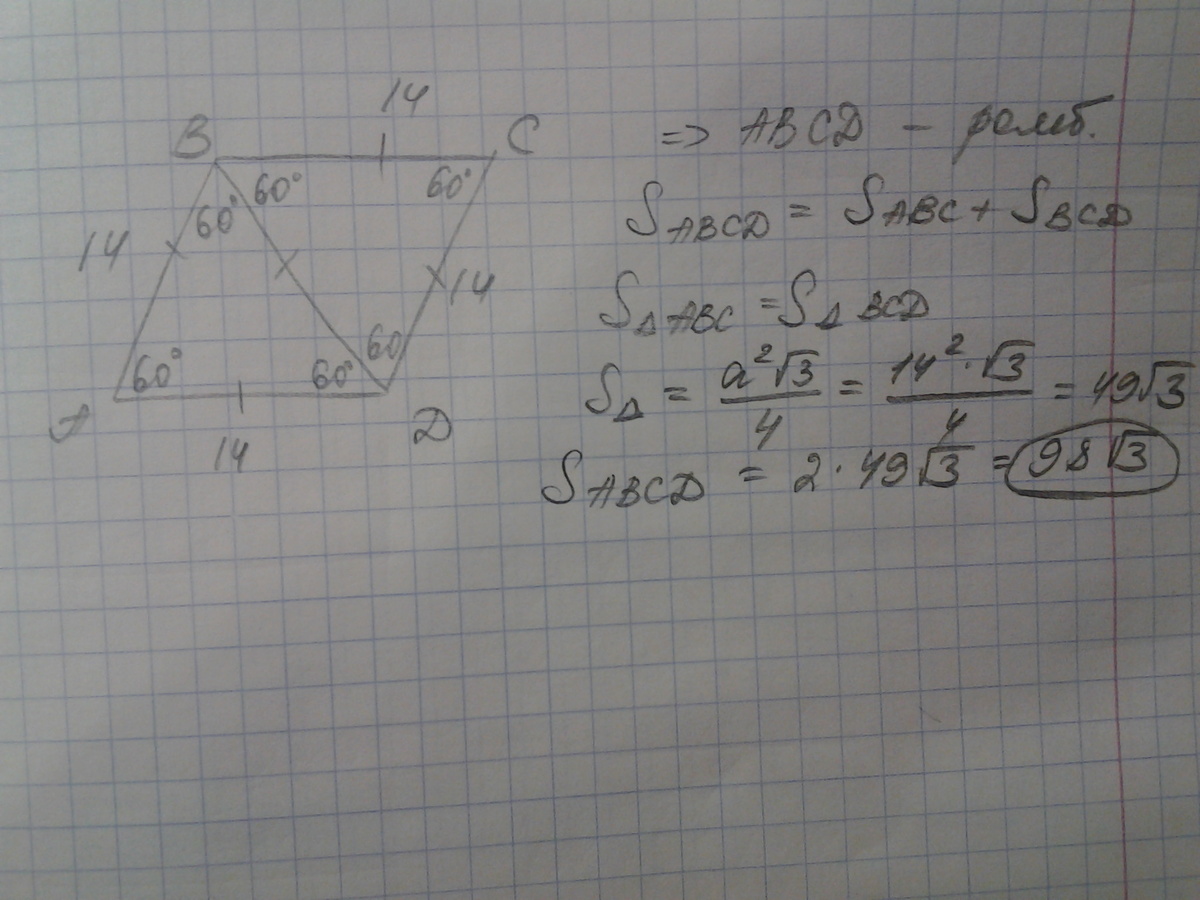 14
B C
60° 60° 60°
14 14
60° 60° 60
A D
14
=> ABCD – ромб.
S ABCD = S ABC + S BCD
S Δ ABC = S Δ BCD
S Δ = a²√3/4 = 14²·√3/4 = 49√3
S ABCD = 2·49√3 = 98√3